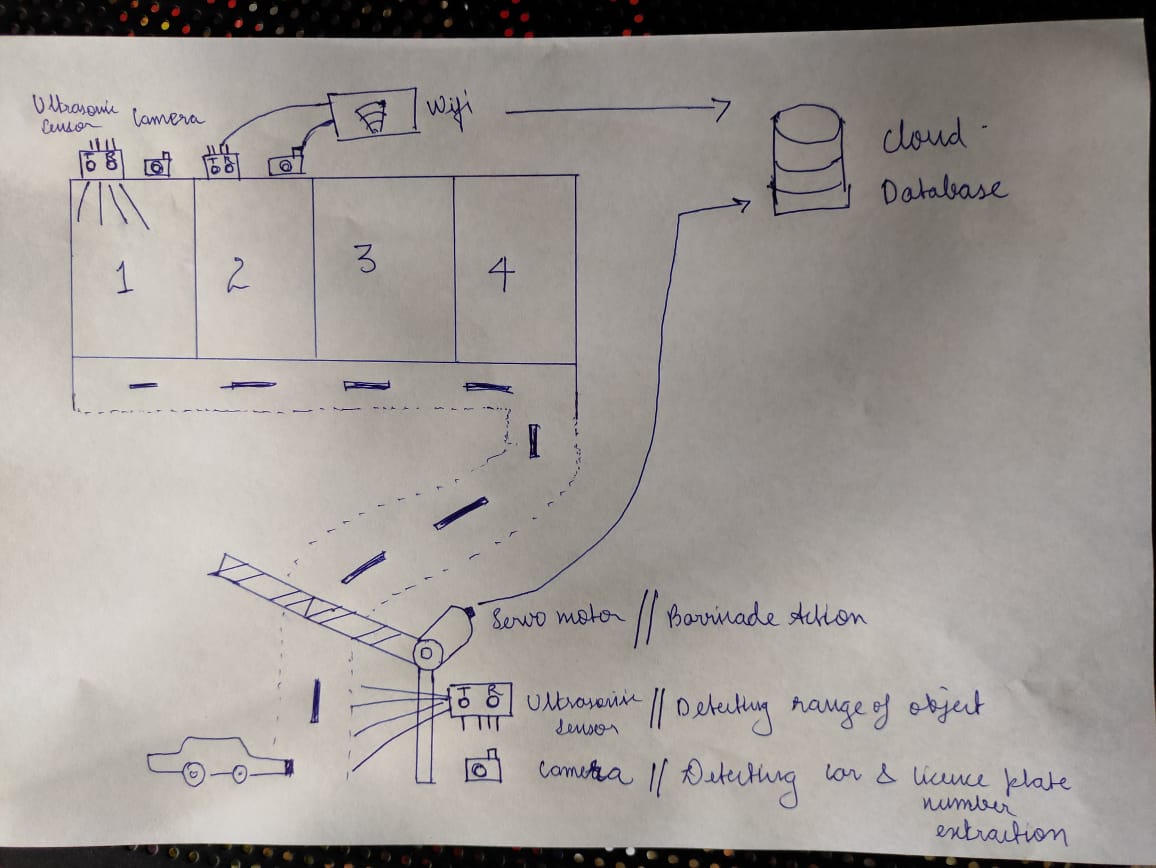 Ultrasonic
Sensor
Camera
Wifi
T R
T R
Cloud
Database
1
2
3
4
Servo motor // Barricade Action
T R
Ultrasonic // Detecting range of object
Sensor
Camera // Detecting car & licence plate
number
extraction